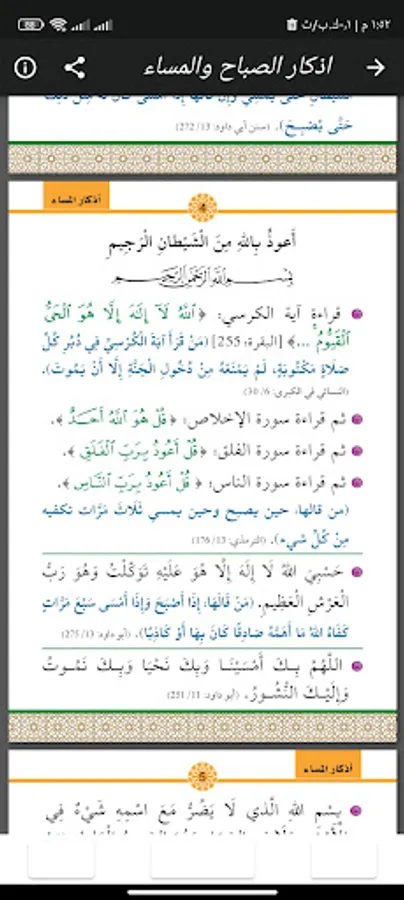 ١:٥٢ م | ٠,١ ك.ب/ث
88
اذكار الصباح والمساء
حَتَّى يُصْبِحَ). (سنن أبي داود: 13/ 272)
أذكار المساء
4
أَعوذُ بِاللهِ مِنَ الْشَيْطانِ الْرَجيمِ
بِسْمِ اللهِ الرَّحْمَنِ الرَّحِيمِ
قراءة آية الكرسي: ﴿ ٱللَّهُ لَآ إِلَٰهَ إِلَّا هُوَ ٱلْحَىُّ
ٱلْقَيُّومُ ...﴾ [البقرة: 255] (مَنْ قَرَأَ آيَةَ الْكُرْسِيِّ فِي دُبُرِ كُلِّ
صَلَاةٍ مَكْتُوبَةٍ، لَمْ يَمْنَعْهُ مِنْ دُخُولِ الجَنَّةِ إِلَّا أَنْ يَمُوتَ).
(النسائي في الكبرى: 6/ 30)
ثم قراءة سورة الإخلاص: ﴿ قُلْ هُوَ ٱللَّهُ أَحَدٌ ﴾.
ثم قراءة سورة الفلق: ﴿ قُلْ أَعُوذُ بِرَبِّ ٱلْفَلَقِ ﴾.
ثم قراءة سورة الناس: ﴿ قُلْ أَعُوذُ بِرَبِّ ٱلنَّاسِ ﴾.
(من قالها، حين يصبح وحين يمسي ثَلَاثَ مَرَّات تكفيه
مِنْ كُلِّ شيء). (الترمذي: 13/ 176)
حَسْبِيَ اللهُ لَا إِلَهَ إِلَّا هُوَ عَلَيْهِ تَوَكَّلْتُ وَهُوَ رَبُّ
الْعَرْشِ الْعَظِيمِ. (مَنْ قَالَهَا، إِذَا أَصْبَحَ وَإِذَا أَمْسَى سَبْعَ مَرَّاتٍ
كَفَاهُ اللهُ مَا أَهَمَّهُ صَادِقًا كَانَ بِهَا أَوْ كَاذِبًا). (أبو داود: 13/ 275)
اللَّهُمَّ بِكَ أَمْسَيْنَا وَبِكَ نَحْيَا وَبِكَ نَمُوتُ
وَإِلَيْكَ النُّشُورُ. (أبو داود: 11/ 251)
أذكار المساء
5
بِسْمِ اللهِ الَّذي لَا يَضُرُّ مَعَ اسْمِهِ شَيْءٌ فِي